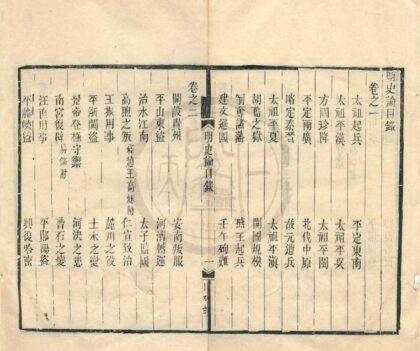 明史論目錄
卷之一
太祖起兵 平定東南
太祖平漢 太祖平吳
方國珍降 太祖平閩
平定兩廣 北伐中原
略定秦晉 故元遺兵
太祖平夏 太祖平滇
胡藍之獄 開國規模
削奪諸藩 燕王起兵
建文遜國 壬午殉難
明史論目錄 一
卷之二
開設貴州 安南叛服
平山東盜 河漕轉運
治水江南 太子監國
高煦之叛 趙王高燧附 仁宣致治
王振用事 麓川之役
平浙閩盜 土木之變
景帝登極守禦 河決之患
南宮復辟 易儲附 曹石之變
汪直用事 平鄖陽盜
平藤峽盜 興復哈密